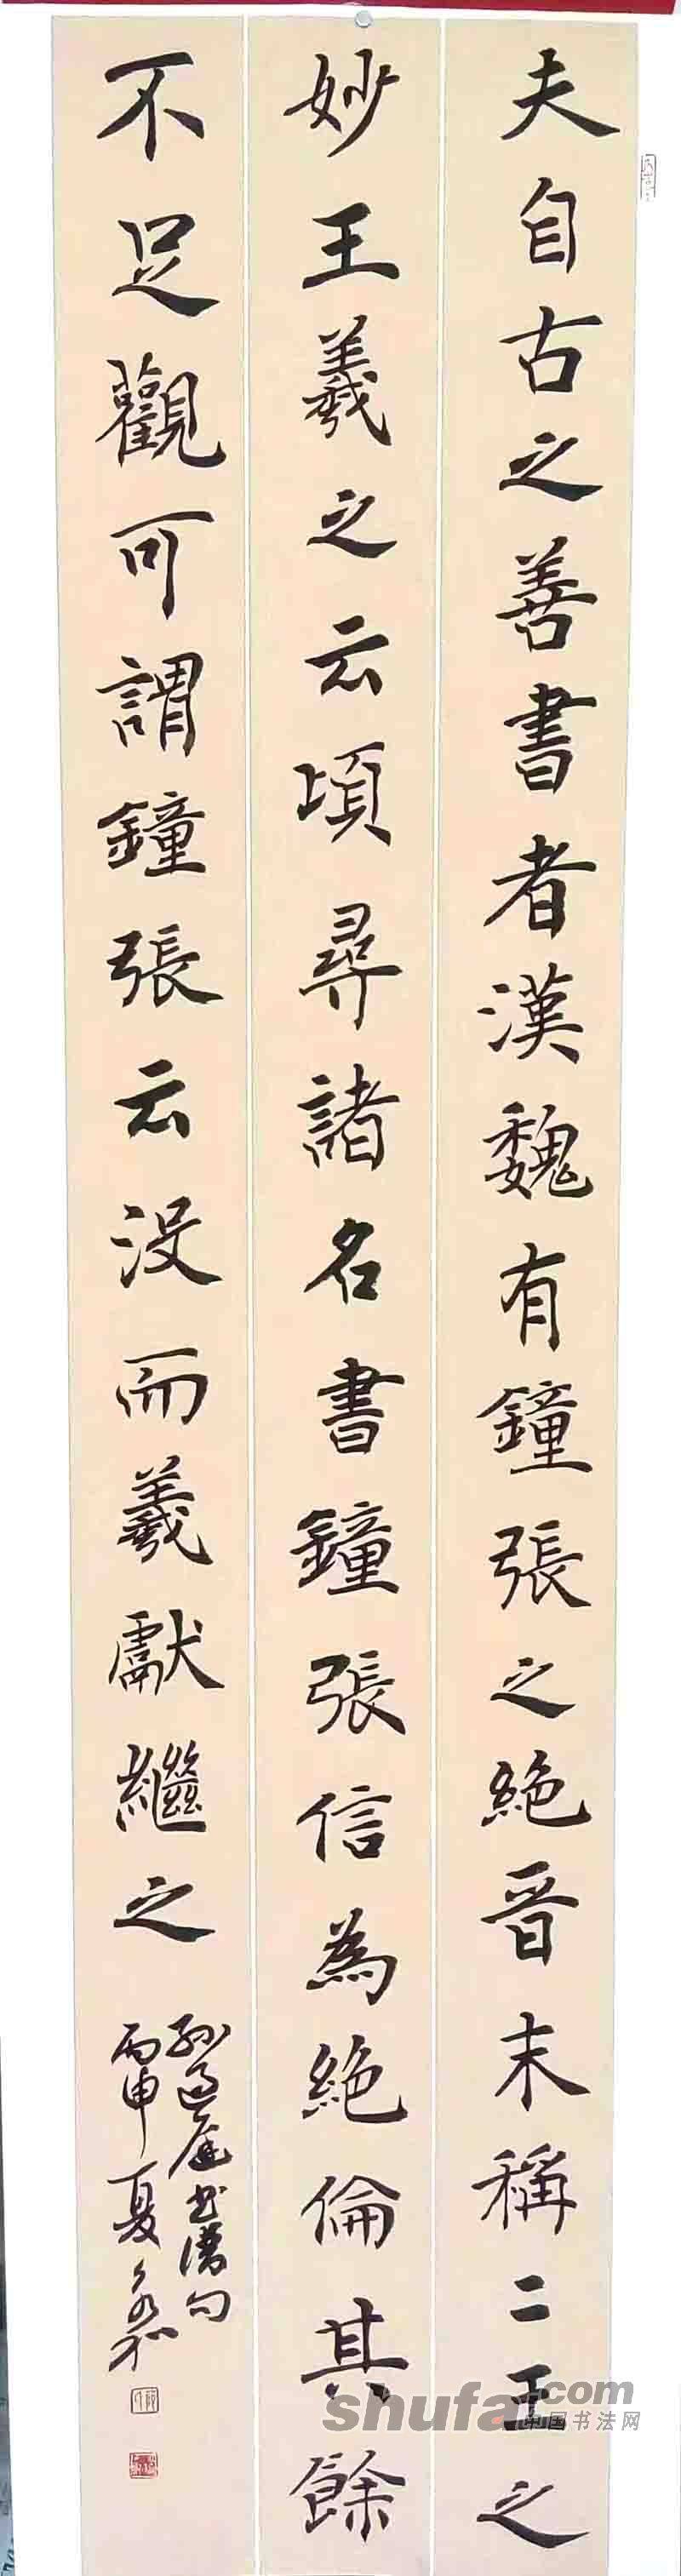 夫自古之善書者漢魏有鐘張之絶晉末稱二王之
妙王羲之云頃尋諸名書鐘張信為絶倫其餘
不足觀可謂鐘張云沒而羲獻繼之
孫過庭書譜句
丙申夏
shufa.com
中国书法网